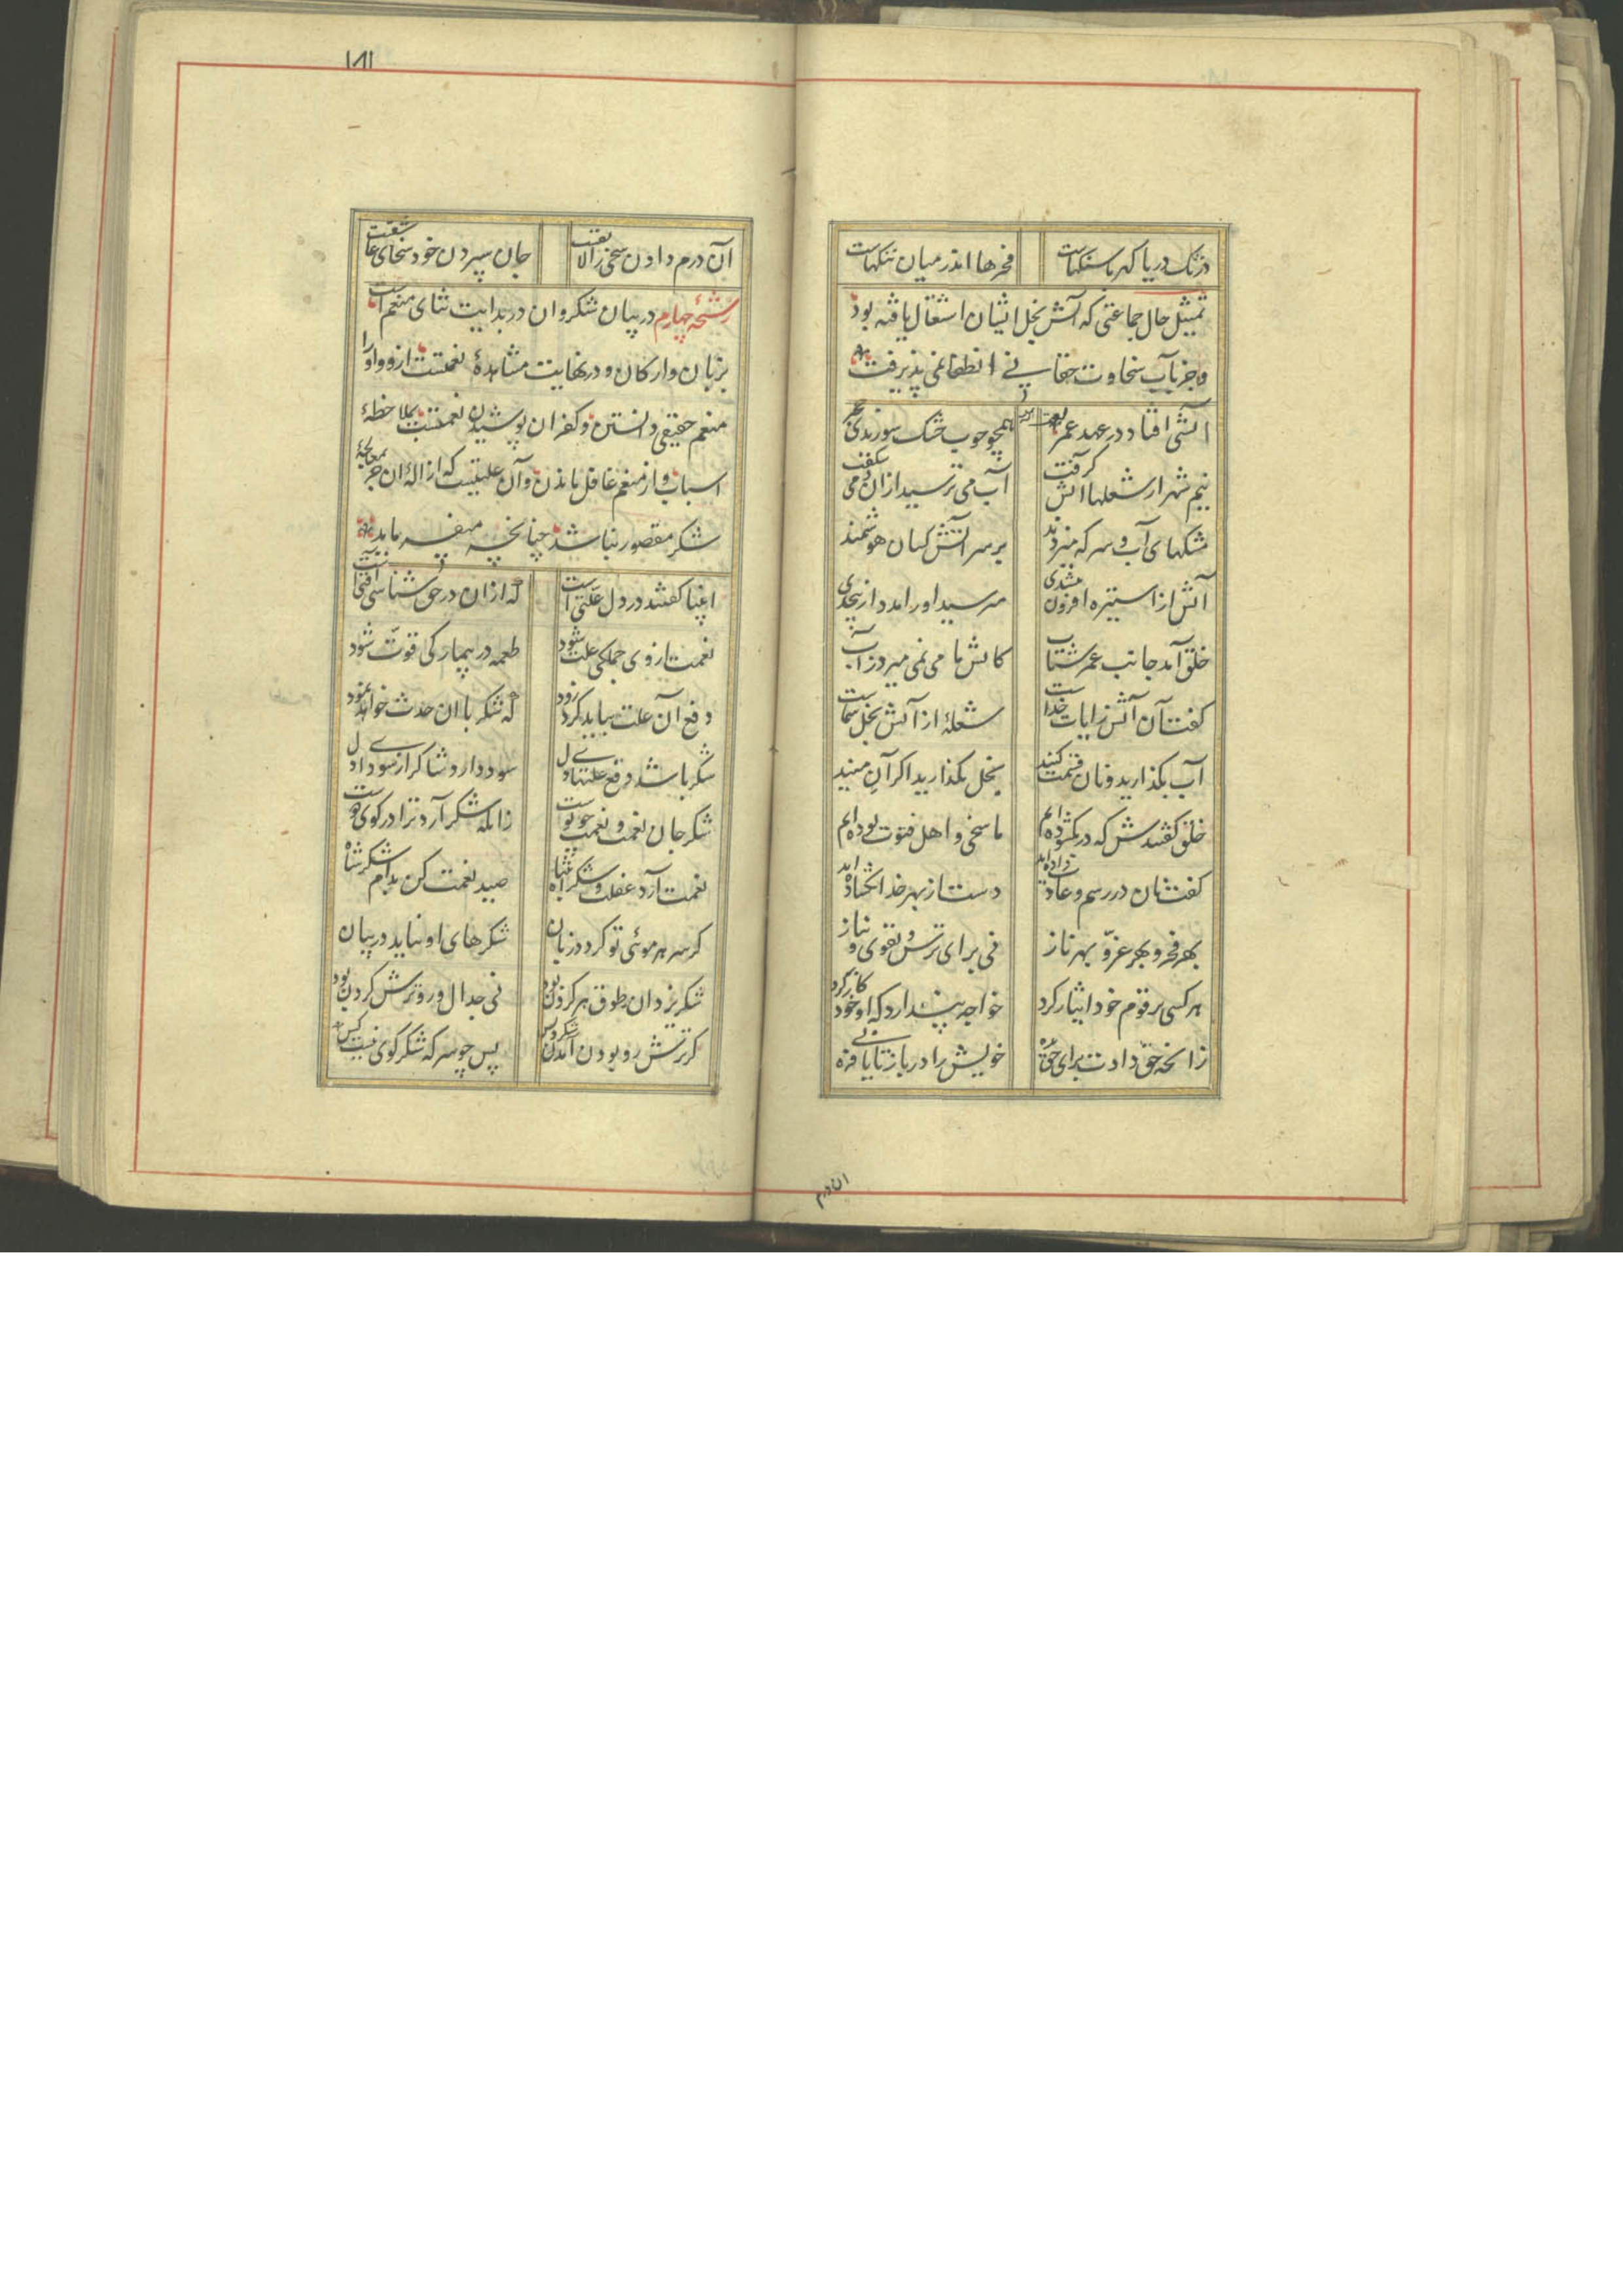 در تک دریا گهر با سنگهاست فخرها اندر میان ننگهاست
تمثیل حال جماعتی که آتش بخل ایشان اشتعال یافته بود
و جز بآب سخاوت انطفا نمی پذیرفت
آتشی افتاد در عهد عمر همچو چوب خشک میخوردی حجر
نیم شهر از شعلها آتش گرفت آب می ترسید ازان و می شکفت
مشکهای آب و سرکه میزدند بر سر آتش کسان هوشمند
آتش از استیزه افزون میشدی میرسید او را مدد از بیحدی
خلق آمد جانب عمر شتاب کاتش ما می نمی میرد ز آب
گفت آن آتش ز ایات خداست شعلهٔ از آتش بخل شماست
آب بگذارید و نان قسمت کنید بخل بگذارید اگر آن منید
خلق گفتندش که در بگشوده‌ایم ما سخی و اهل فتوت بوده‌ایم
گفت نان در رسم و عادت داده‌اید دست از بهر خدا نگشاده‌اید
بهر فخر و بهر عزّ و بهر ناز نی برای ترس و تقوی و نیاز
هر کسی بر قوم خود ایثار کرد خواجه پندارد که او خود کار کرد
زانچه حق دادت برای حق بده خویش را دریاب تا یابی فره
ان درم
١٨١
آن درم دادن سخی را لایقست جان سپردن خود سخای عاشقست
رشحهٔ چهارم در بیان شکر و ان در بدایت ثنای منعم است
بزبان و ارکان و در نهایت مشاهدهٔ نعمتست ازو و او را
منعم حقیقی دانستن و کفران پوشیدن نعمتست بملاحظهٔ
اسباب و از منعم غافل ماندن و آن علتیست که ازالهٔ ان جز بمعالجهٔ
شکر مقصور نباشد چنانچه میفرماید
انبیا گفتند در دل علّتی است که ازان در حق شناسی آفتی است
نعمت از وی جملگی علت شود طعمه در بیمار کی قوّت شود
دفع آن علت بباید کرد زود که شکر با ان حدث خواهد نمود
شکر باشد دفع علتهای دل سود دارد شاکر از سودای دل
شکر جان نعمت و نعمت چو پوست زانکه شکر آرد ترا در کوی دوست
نعمت آرد غفلت و شکر انتباه صید نعمت کن بدام شکر شاه
گر سر هر موئی تو گردد زبان شکرهای او نیاید در بیان
شکر یزدان طوق هر گردن بود نی جدال و رو ترش کردن بود
گر ترش رو بودن آمد شکر و بس پس چو سرکه شکرگوی نیست کس